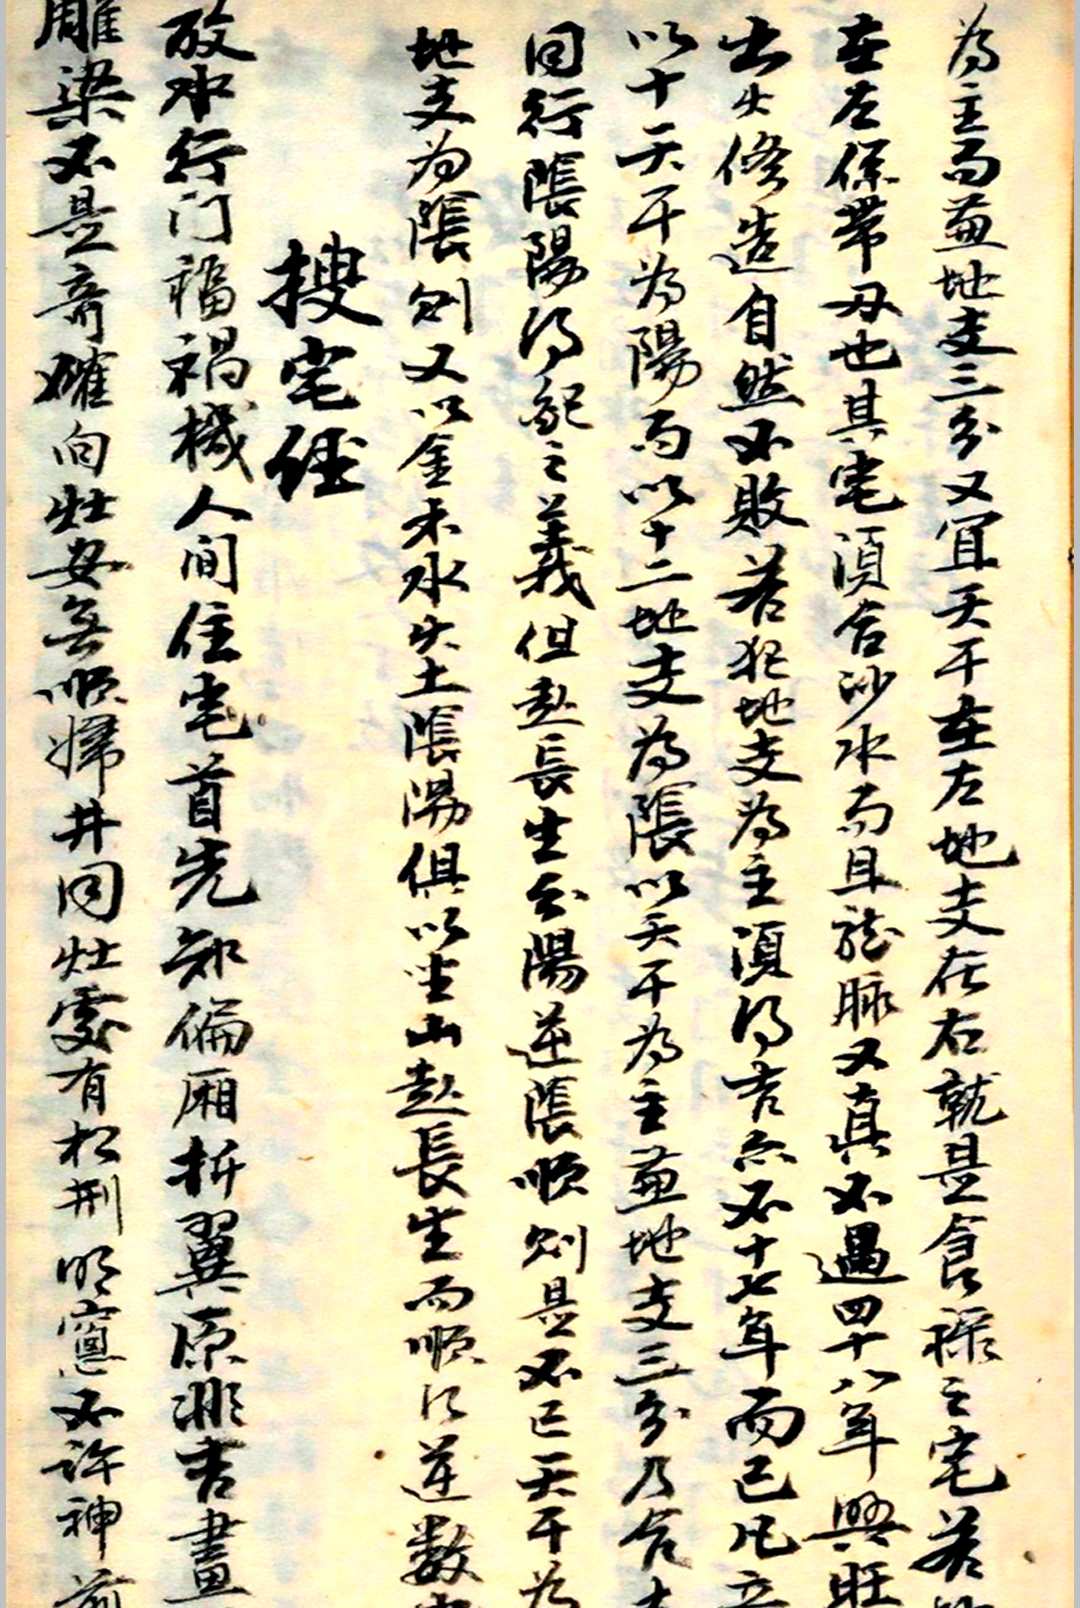 為主而兼地支三分又宜天干在左地支在右就是食祿之宅若
在左係帶刃也其宅須合沙水而且龍脉又真不過四十八年興旺
出火修造自然不敗若犯地支為主須得吉亦不十七年而已凡立
以十天干為陽而以十二地支為陰以天干為主兼地支三分乃合
同行陰陽得配之義但起長生分陽逆陰順則是不已天干為
地支为陰則又以金木水火土陰陽俱以坐山起長生而順行逆數
搜宅經
放水行门福祸機人间住宅首先知偏厢折翼原非吉畫
雕梁不是奇確向灶安無順婦井同灶處有松刑明窻不許神前